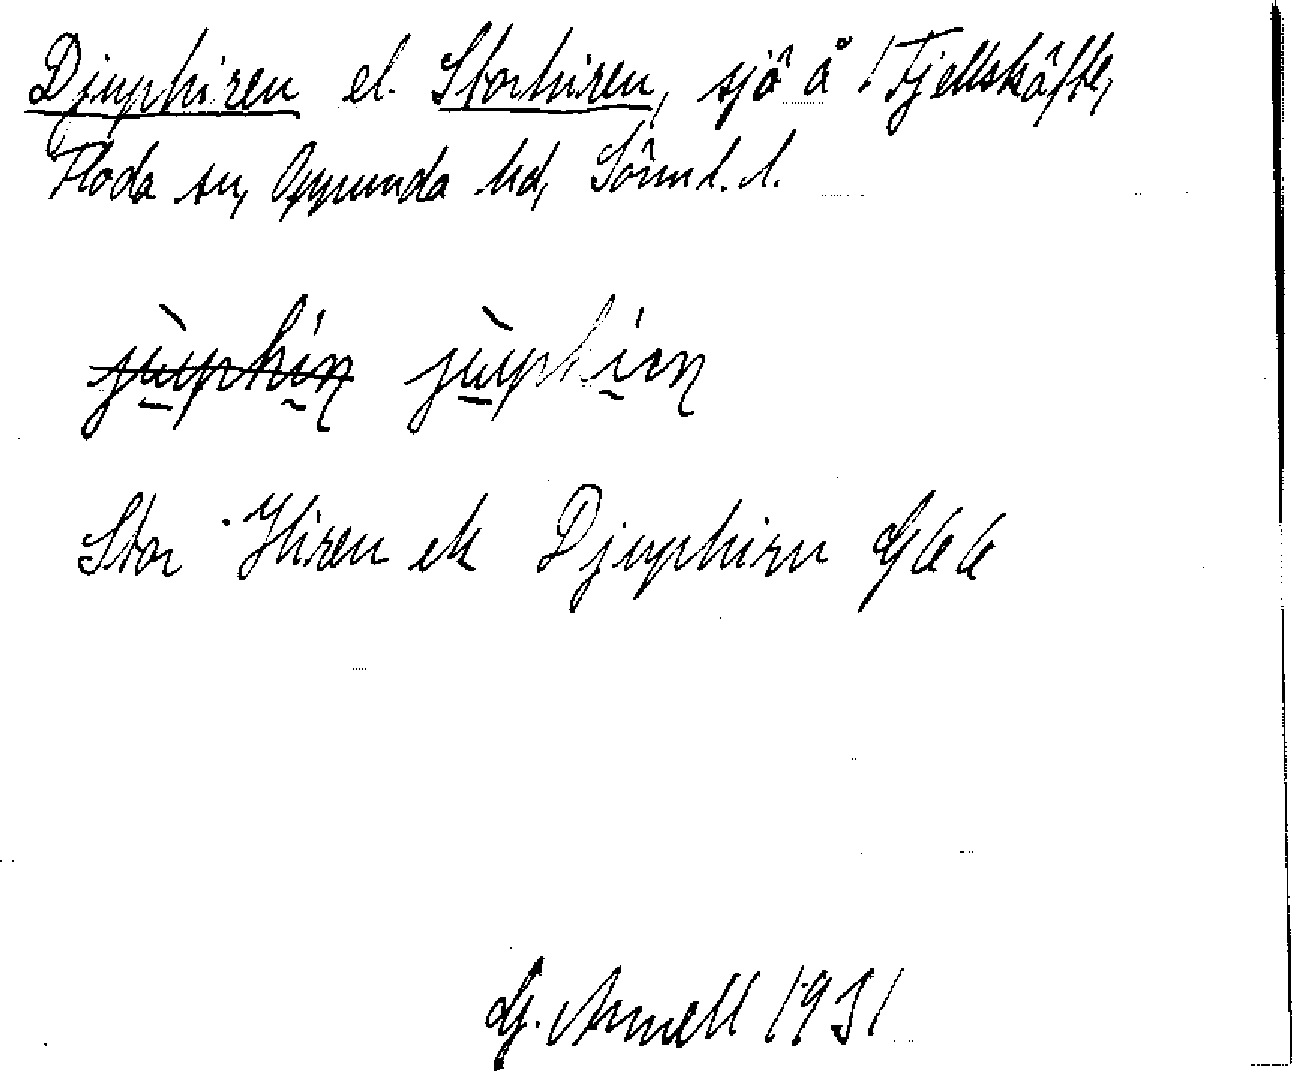 Djuphiren el. Storhiren, sjö å 1 Fjellskäfte,
Floda sn, Oppunda hd, Sörml. l.
jùphín jùphíen
Stor-Hiren elr Djuphiren GEK
G. Arnell 1931